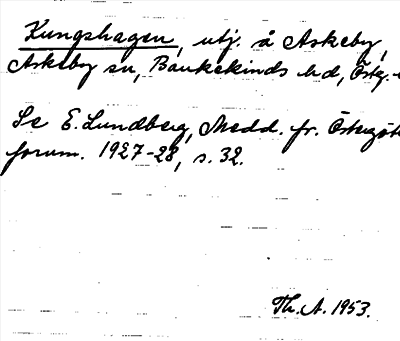 Kungshagen, utj. å Askeby,
Askeby sn, Bankekinds hd, Östg.
Se E. Lundberg, Medd. fr. Östergöt
forum. 1927-28, s. 32.
Th. A. 1953.